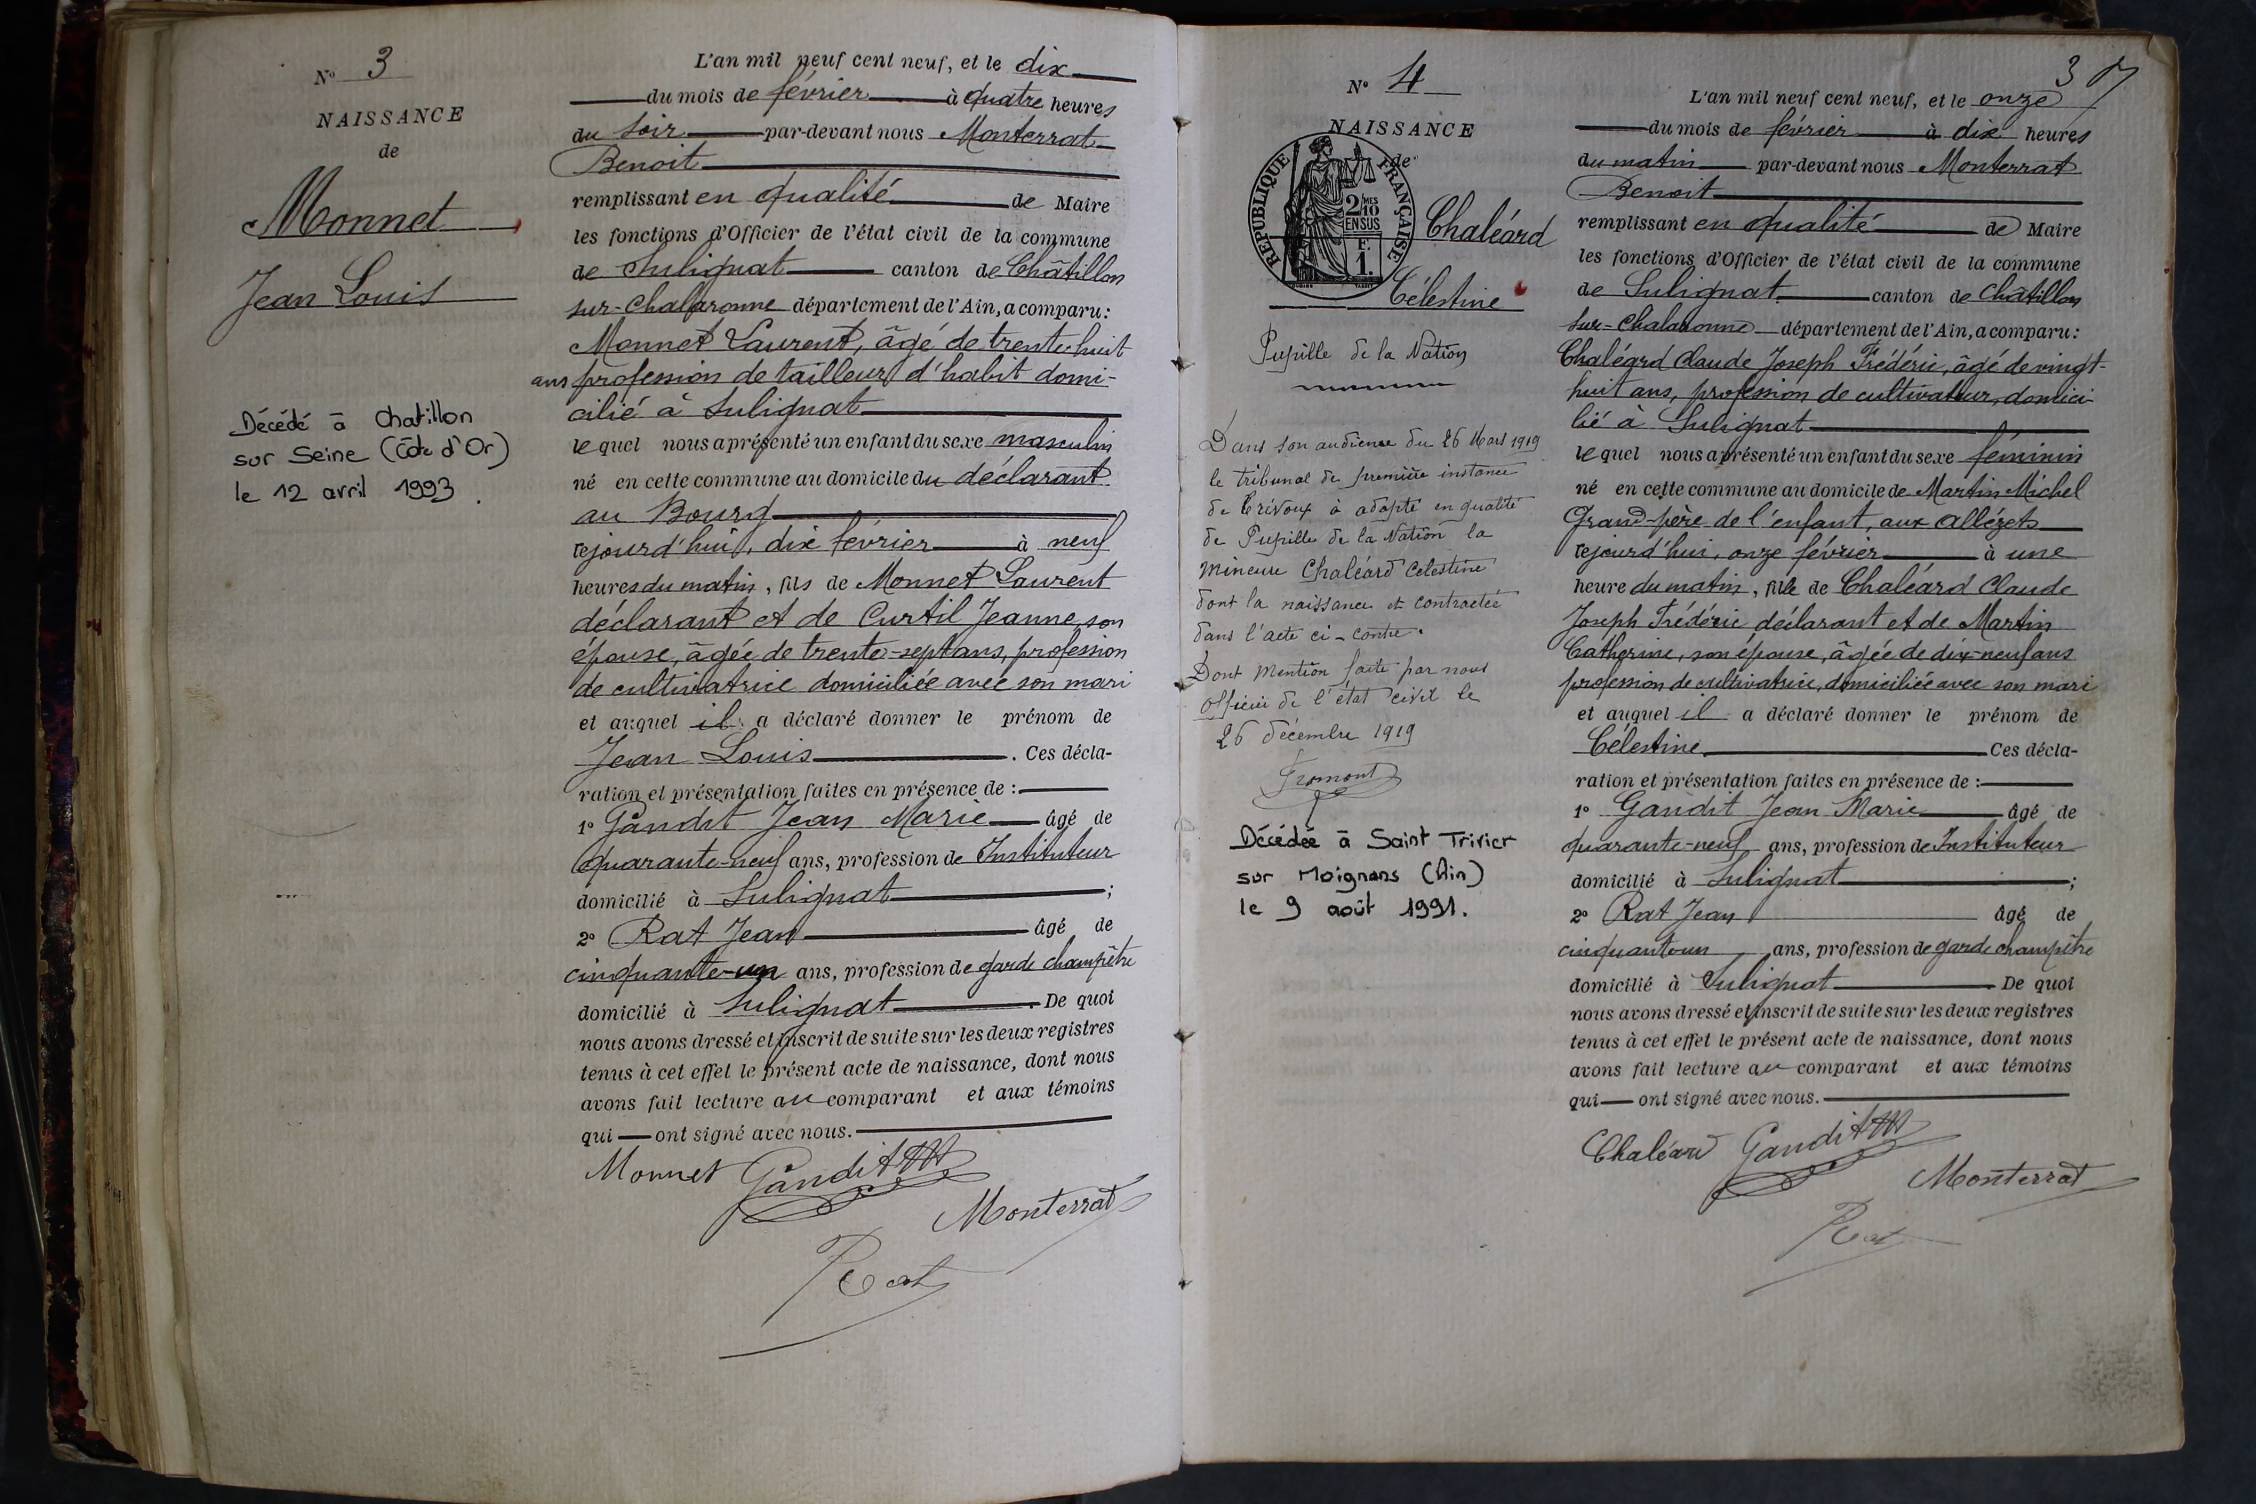 N° 3
NAISSANCE
de
Monnet
Jean Louis
Décédé à Chatillon
sur Seine (Côte d'Or)
le 12 avril 1993.
L'an mil neuf cent neuf, et le dix
du mois de février à quatre heures
du soir par-devant nous Monterrat
Benoit
remplissant en qualité de Maire
les fonctions d'Officier de l'état civil de la commune
de Sulignat canton de Châtillon
sur-Chalaronne département de l'Ain, a comparu:
Monnet Laurent, âgé de trente-huit
ans profession de tailleur d'habit domi-
cilié à Sulignat
lequel nous a présenté un enfant du sexe masculin
né en cette commune au domicile du déclarant
au Bourg
cejourd'hui, dix février à neuf
heures du matin, fils de Monnet Laurent
déclarant et de Curtil Jeanne, son
épouse, âgée de trente-sept ans, profession
de cultivatrice domiciliée avec son mari
et auquel il a déclaré donner le prénom de
Jean Louis. Ces décla-
ration et présentation faites en présence de :
1° Gandit Jean Marie âgé de
quarante-neuf ans, profession de Instituteur
domicilié à Sulignat ;
2° Rat Jean âgé de
cinquante-un ans, profession de garde champêtre
domicilié à Sulignat. De quoi
nous avons dressé et inscrit de suite sur les deux registres
tenus à cet effet le présent acte de naissance, dont nous
avons fait lecture au comparant et aux témoins
qui — ont signé avec nous.
Monnet Gandit
Monterrat
Rat
3
N° 4
NAISSANCE
de
REPUBLIQUE FRANÇAISE
2/10MES
EN SUS
F.
1.
Chaléard
Célestine
Pupille de la Nation
Dans son audience du 26 Mars 1919
le tribunal de première instance
de Trévoux à adopté en qualité
de Pupille de la Nation la
mineure Chaléard Célestine
dont la naissance est contractée
dans l'acte ci-contre.
Dont mention faite par nous
officier de l'état civil le
26 décembre 1919
Fromont
Décédée à Saint Trivier
sur Moignans (Ain)
le 9 août 1991.
L'an mil neuf cent neuf, et le onze
du mois de février à dix heures
du matin par-devant nous Monterrat
Benoit
remplissant en qualité de Maire
les fonctions d'Officier de l'état civil de la commune
de Sulignat canton de Châtillon
sur-Chalaronne département de l'Ain, a comparu:
Chaléard Claude Joseph Frédéric, âgé de vingt-
huit ans, profession de cultivateur, domici-
lié à Sulignat
lequel nous a présenté un enfant du sexe féminin
né en cette commune au domicile de Martin Michel
Grand-père de l'enfant, aux Allézets
cejourd'hui, onze février à une
heure du matin, fille de Chaléard Claude
Joseph Frédéric déclarant et de Martin
Catherine, son épouse, âgée de dix-neuf ans
profession de cultivatrice, domiciliée avec son mari
et auquel il a déclaré donner le prénom de
Célestine Ces décla-
ration et présentation faites en présence de :
1° Gandit Jean Marie âgé de
quarante-neuf ans, profession de Instituteur
domicilié à Sulignat ;
2° Rat Jean âgé de
cinquante-un ans, profession de garde champêtre
domicilié à Sulignat. De quoi
nous avons dressé et inscrit de suite sur les deux registres
tenus à cet effet le présent acte de naissance, dont nous
avons fait lecture au comparant et aux témoins
qui — ont signé avec nous.
Chaléard Gandit
Monterrat
Rat